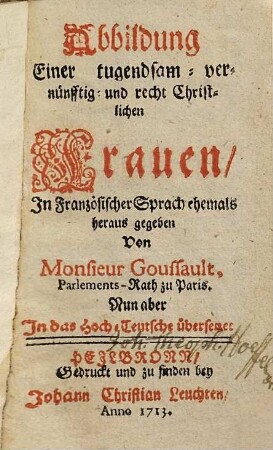 Abbildung
Einer tugendsam- ver-
nünfftig- und recht Christ-
lichen
Frauen/
In Französischer Sprach ehemals
heraus gegeben
Von
Monsieur Goussault,
Parlements-Rath zu Paris.
Nun aber
In das Hoch-Teutsche übersetzet
Joh. Theoph. Hoeff
HEJLBRONN/
Gedruckt und zu finden bey
Johann Christian Leuchten/
Anno 1713.